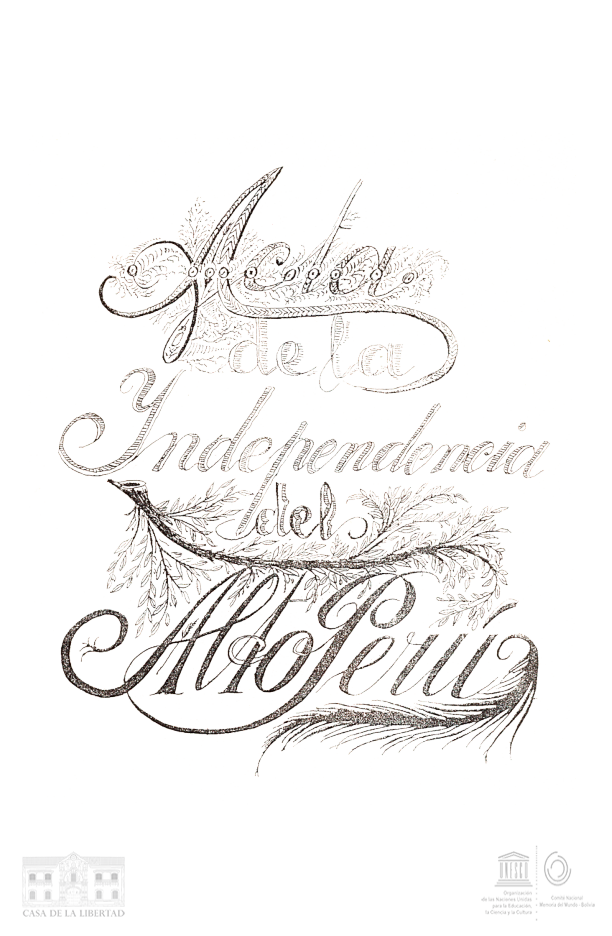 Acta
de la
Independencia
del
Alto Perú
CASA DE LA LIBERTAD
UNESCO
Organización
de las Naciones Unidas
para la Educación,
la Ciencia y la Cultura
Comité Nacional
Memoria del Mundo - Bolivia